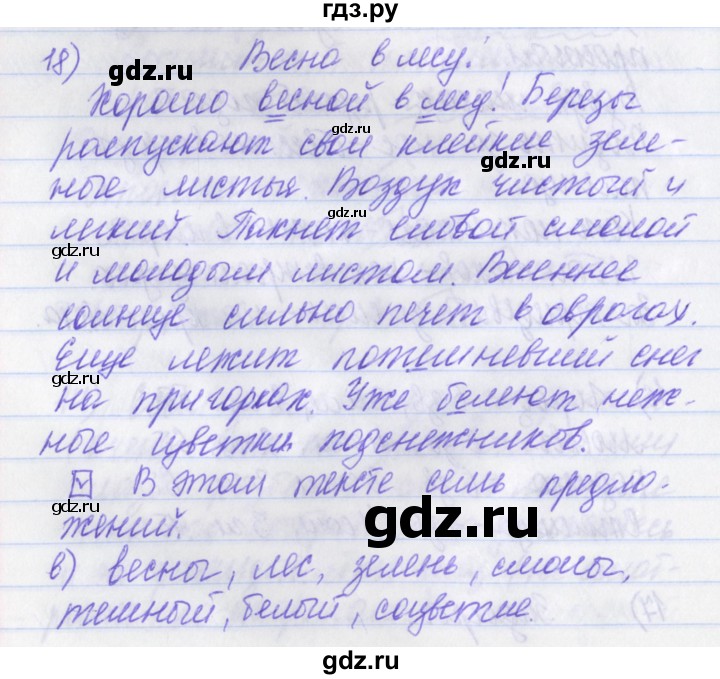 гдз.ру
18) Весна в лесу!
gdz.ru
Хорошо весной в лесу! Березы
gdz.ru
распускают свои клейкие зеле-
gdz.ru
ные листья. Воздух чистый и
gdz.ru
легкий. Пахнет еловой смолой
gdz.ru
и молодым листом. Весеннее
солнце сильно печет в оврогах.
gdz.ru
Еще лежит потемневший снег
gdz.ru
на пригорках. Уже белеют неж-
ные цветки подснежников.
В этом тексте семь предло-
жений.
gdz.ru
в) весны, лес, зелень, смолы,
темный, белый, соцветие.
gdz.ru
gdz.ru